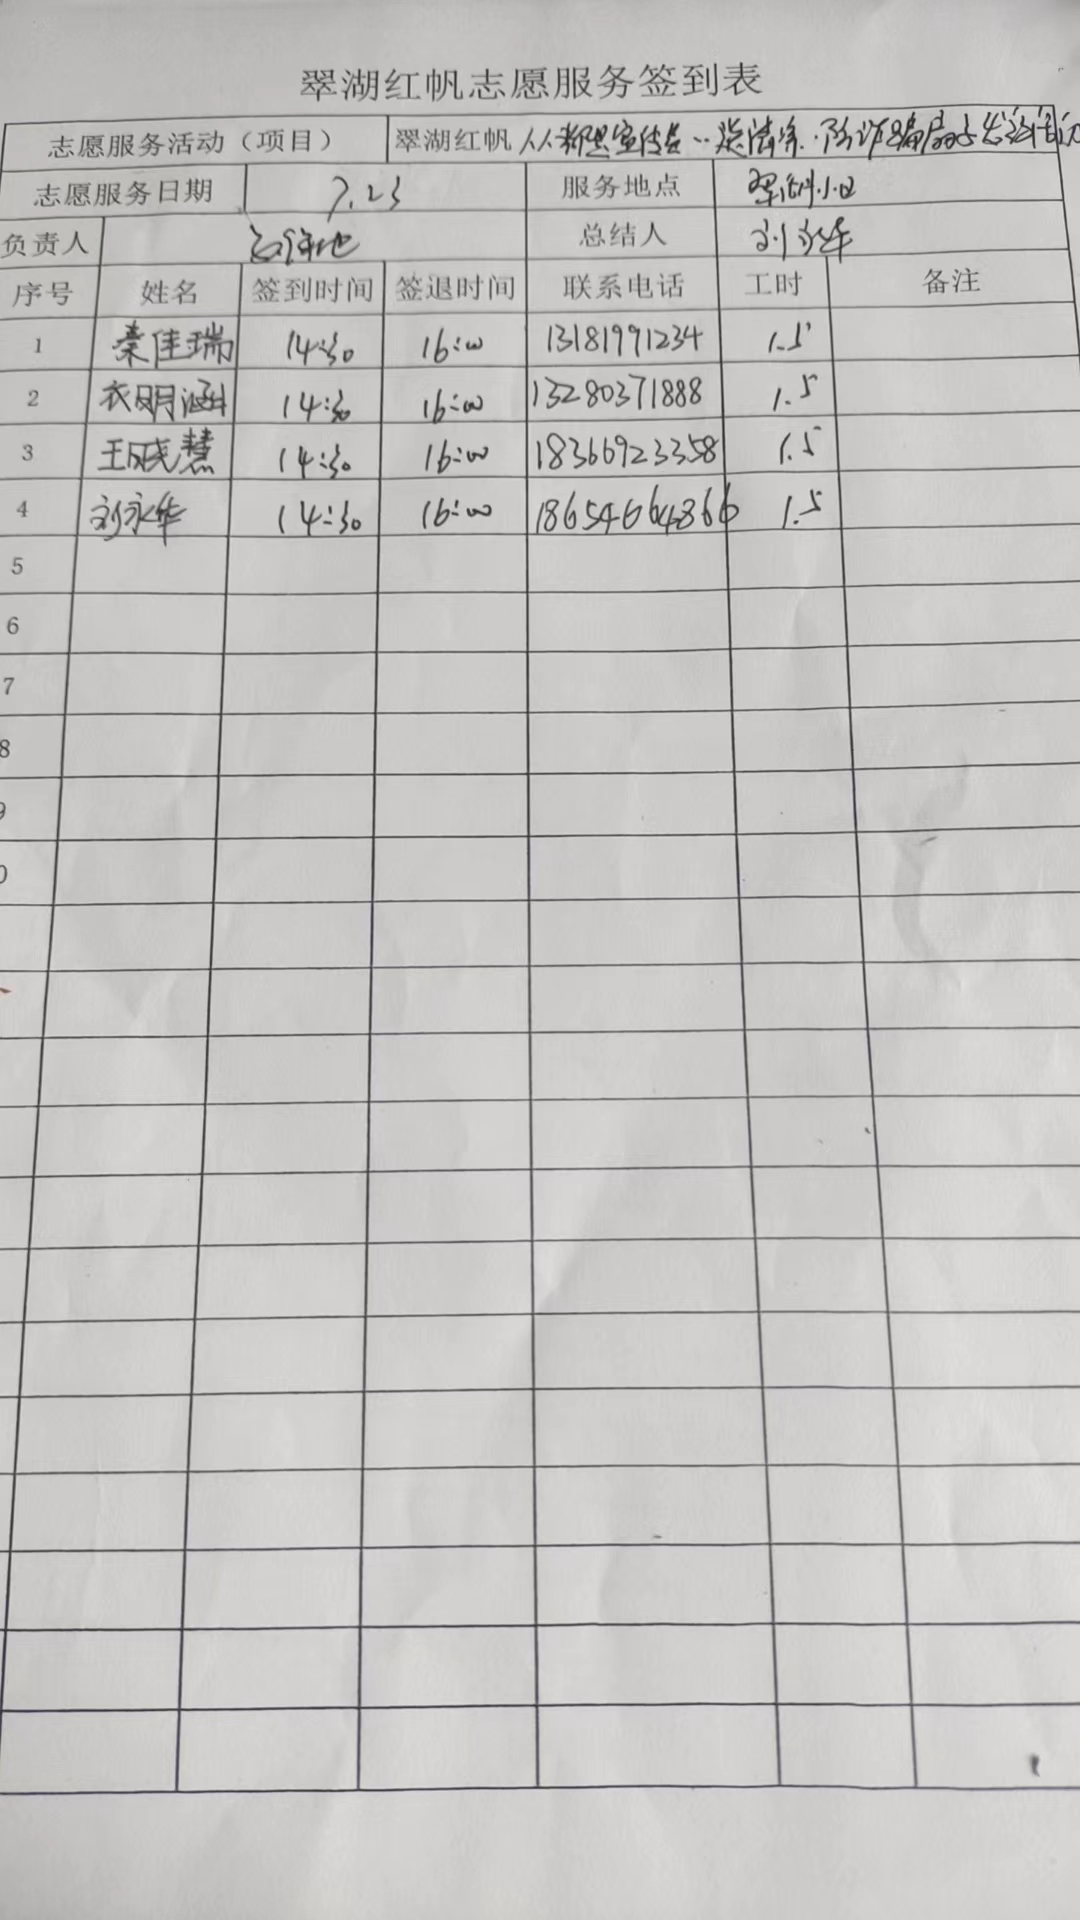 翠湖红帆志愿服务签到表
志愿服务活动（项目） 翠湖红帆人人都是宣传员
志愿服务日期 7.23 服务地点 翠湖小区
负责人 总结人 刘永华
序号 姓名 签到时间 签退时间 联系电话 工时 备注
1 秦佳瑞 14:30 16:00 13181991234 1.5
2 衣明涵 14:30 16:00 13280371888 1.5
3 王晓慧 14:30 16:00 18366923358 1.5
4 刘永华 14:30 16:00 18654664866 1.5
5
6
7
8
9
0